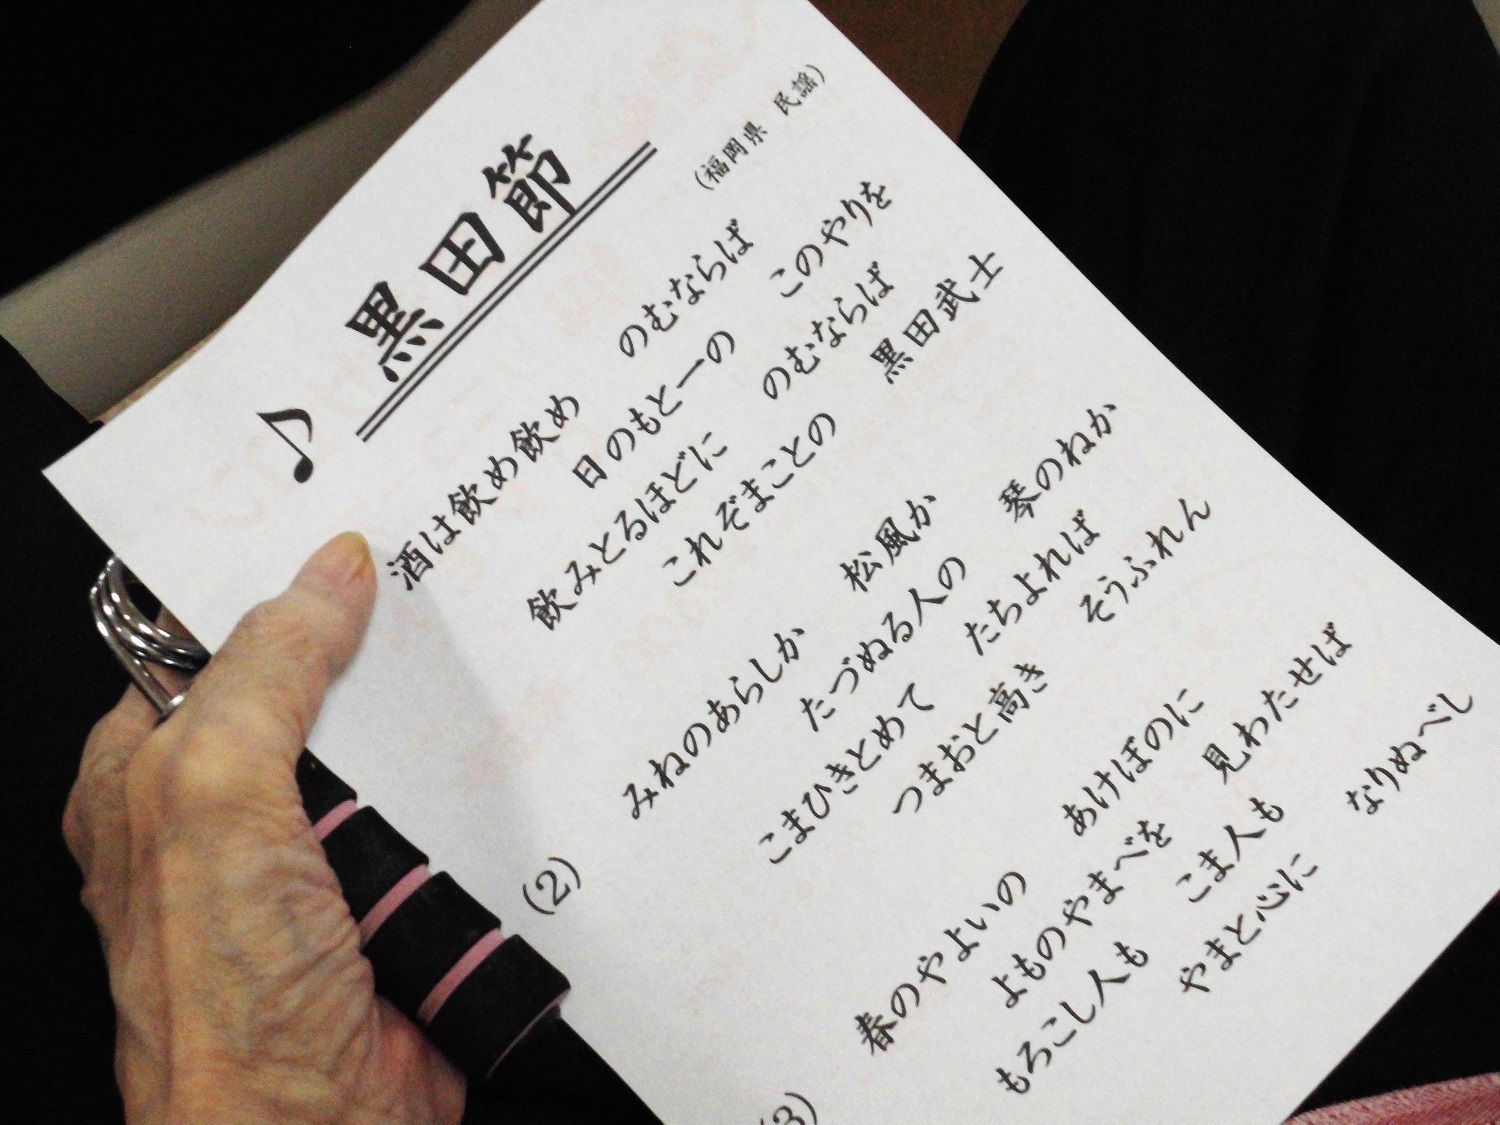 ♪ 黒田節
(福岡県 民謡)
酒は飲め飲め のむならば
日のもと一の このやりを
飲みとるほどに のむならば
これぞまことの 黒田武士
みねのあらしか 松風か
たづぬる人の 琴のねか
こまひきとめて たちよれば
つまおと高き そうふれん
(2)
春のやよいの あけぼのに
よものやまべを 見わたせば
もろこし人も こま人も
やまと心に なりぬべし
(3)